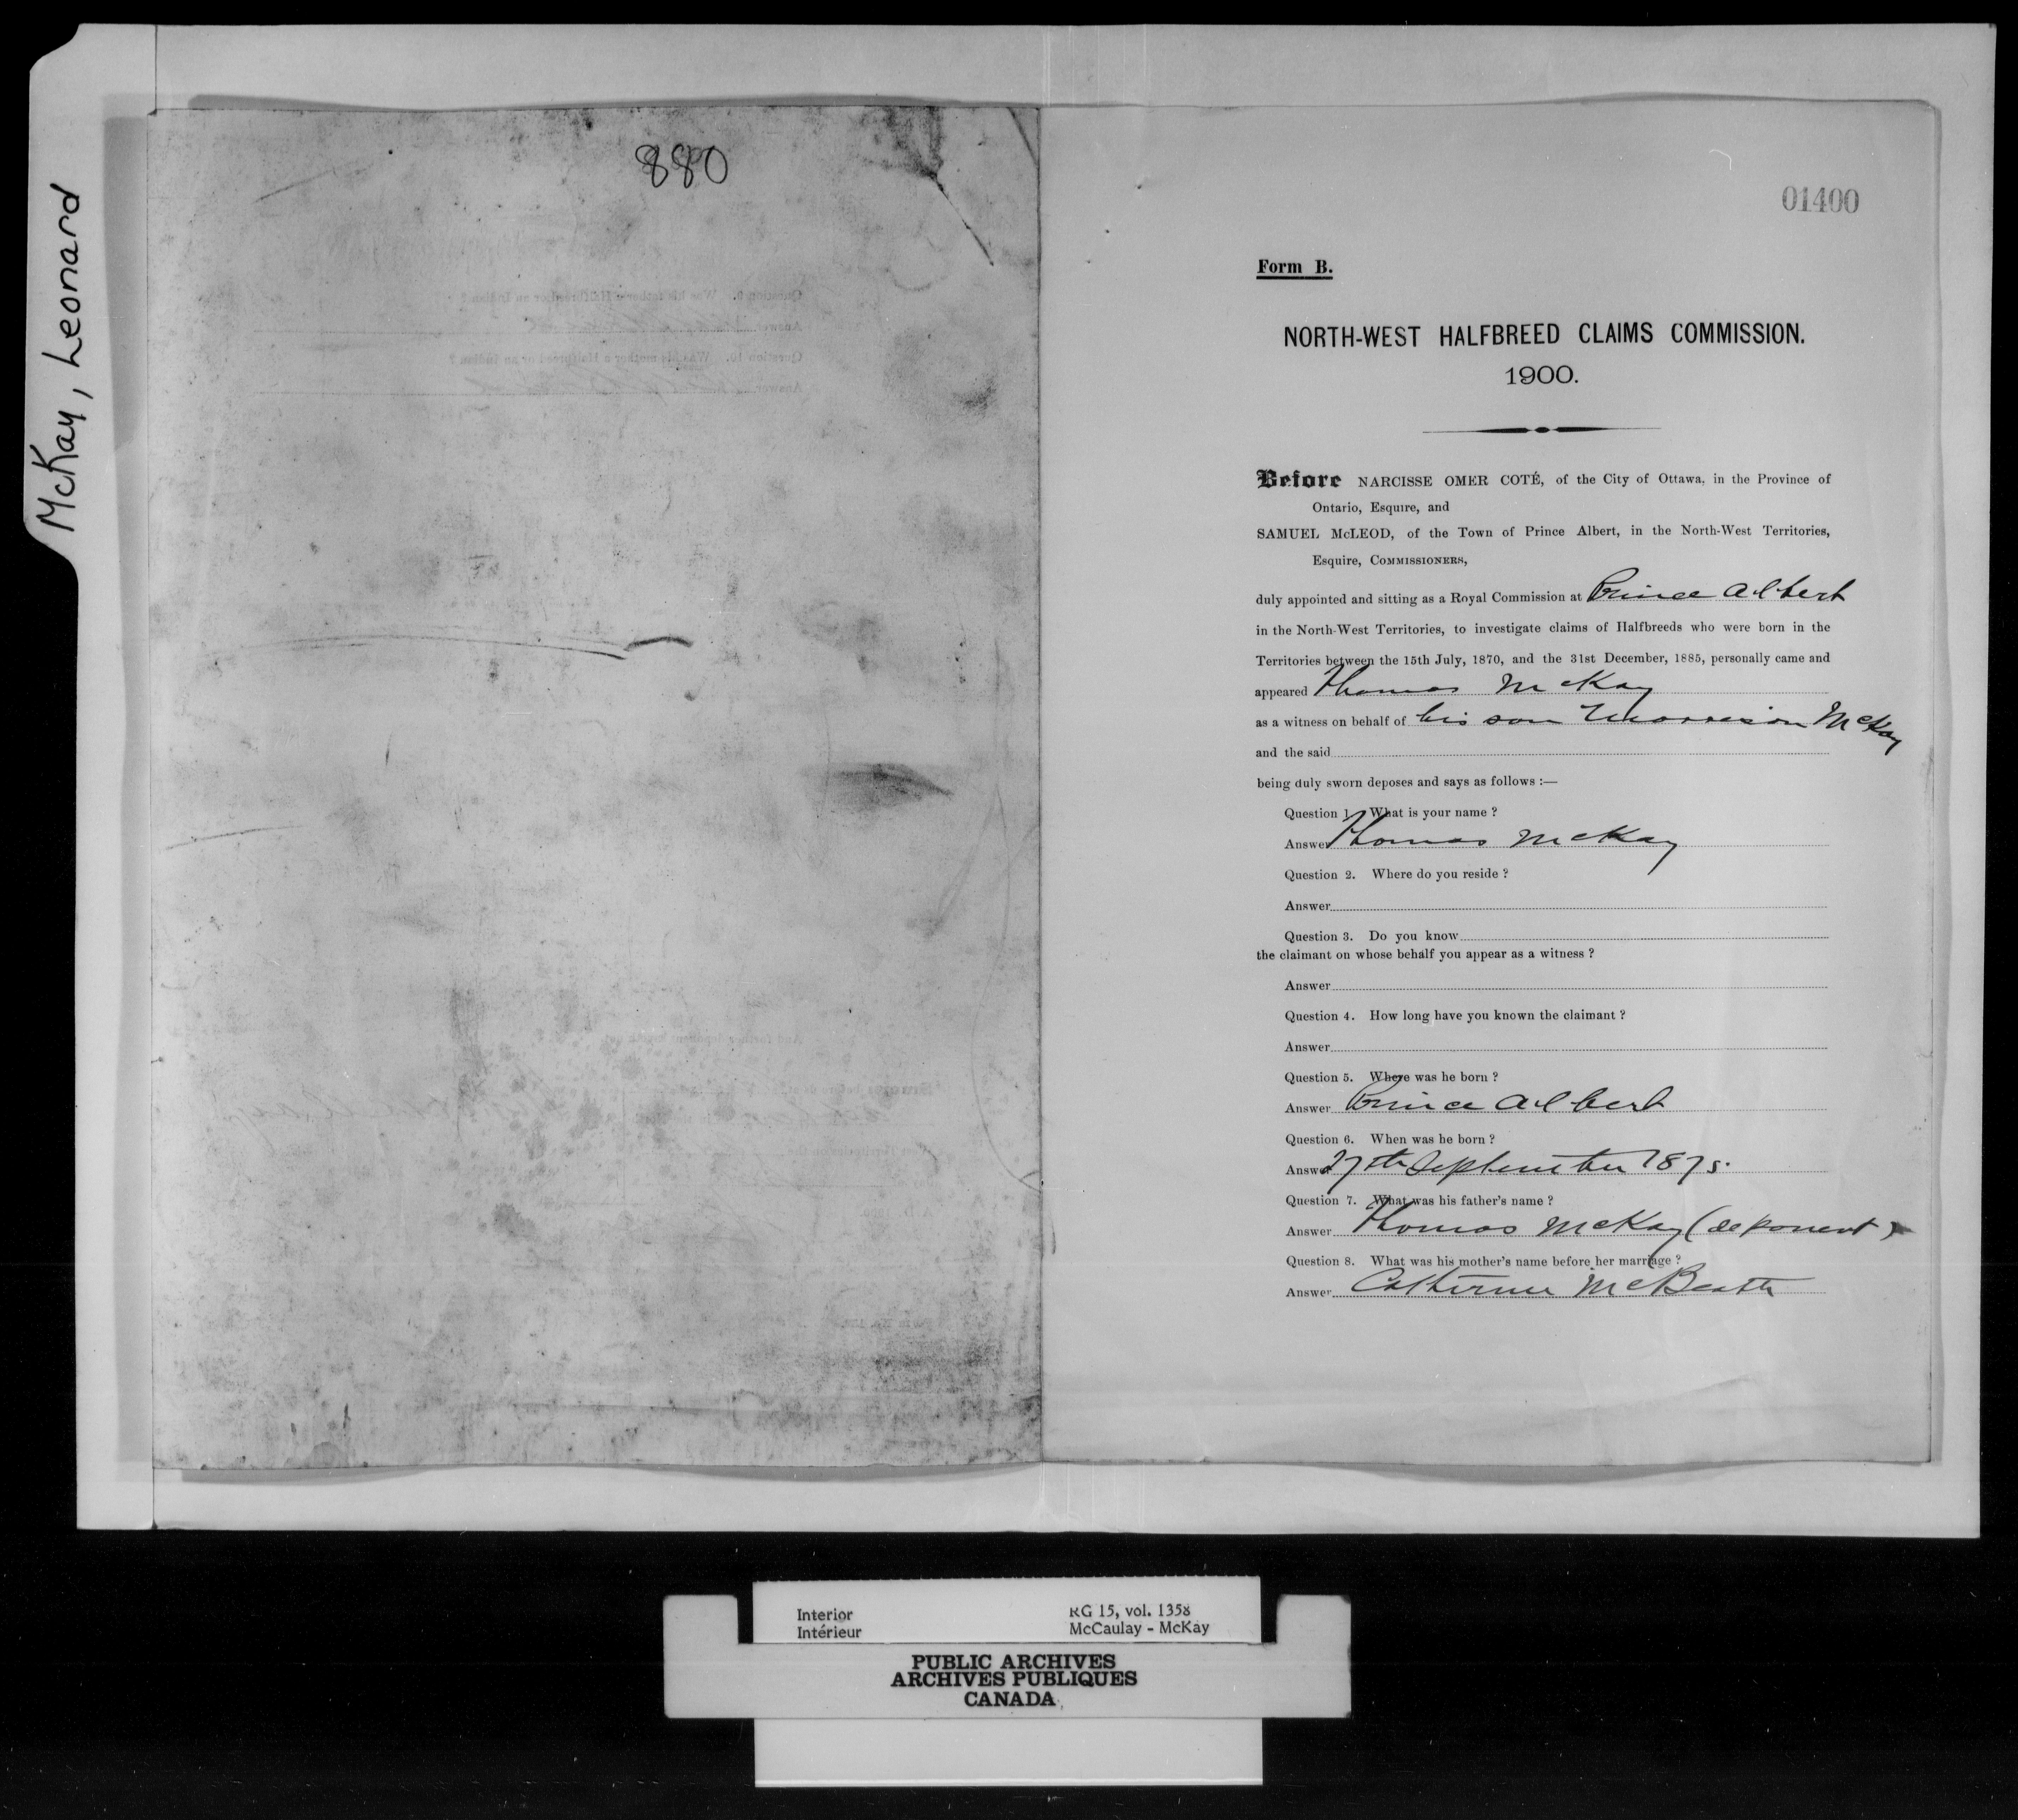 McKay, Leonard
880
01400
Form B.
NORTH-WEST HALFBREED CLAIMS COMMISSION.
1900.
Before NARCISSE OMER COTÉ, of the City of Ottawa, in the Province of
Ontario, Esquire, and
SAMUEL McLEOD, of the Town of Prince Albert, in the North-West Territories,
Esquire, COMMISSIONERS,
duly appointed and sitting as a Royal Commission at Prince Albert
in the North-West Territories, to investigate claims of Halfbreeds who were born in the
Territories between the 15th July, 1870, and the 31st December, 1885, personally came and
appeared Thomas McKay
as a witness on behalf of his son Morrison McKay
and the said
being duly sworn deposes and says as follows :—
Question 1. What is your name ?
Answer Thomas McKay
Question 2. Where do you reside ?
Answer
Question 3. Do you know
the claimant on whose behalf you appear as a witness ?
Answer
Question 4. How long have you known the claimant ?
Answer
Question 5. Where was he born ?
Answer Prince Albert
Question 6. When was he born ?
Answer 27th September 1875.
Question 7. What was his father's name ?
Answer Thomas McKay (deponent)
Question 8. What was his mother's name before her marriage ?
Answer Catherine McBeath
Interior RG 15, vol. 1358
Intérieur McCaulay - McKay
PUBLIC ARCHIVES
ARCHIVES PUBLIQUES
CANADA